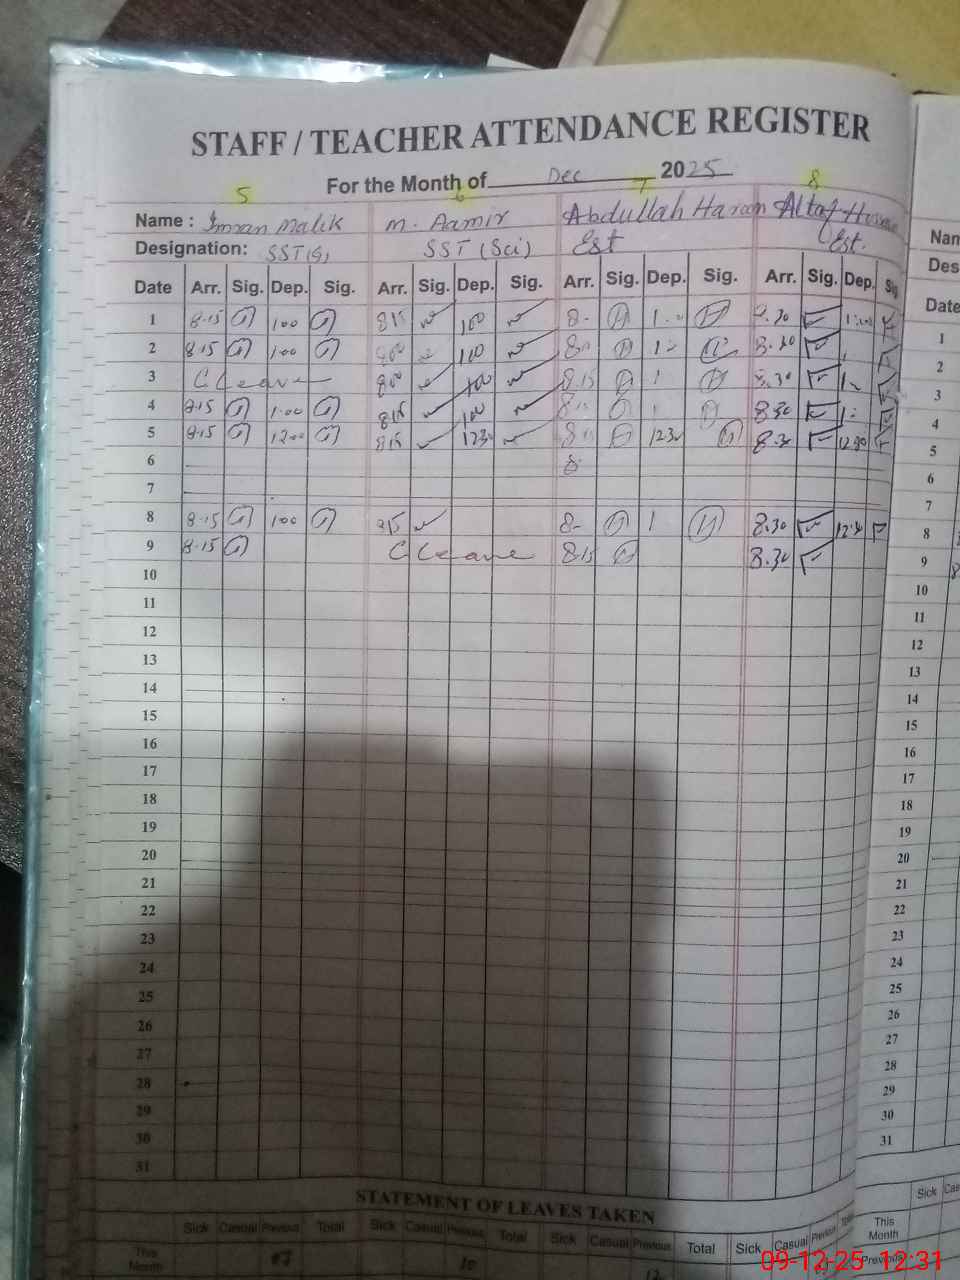 STAFF / TEACHER ATTENDANCE REGISTER
For the Month of Dec 2025
5 6 7 8
Name : Imran Malik M. Aamir Abdullah Haroon Altaf
Designation: SST(G) SST (Sci) Est Est.
Date Arr. Sig. Dep. Sig. Arr. Sig. Dep. Sig. Arr. Sig. Dep. Sig. Arr. Sig. Dep. Sig
1 8.15 100 815 100 8- 8.30
2 8.15 100 800 100 8.30
3 C Leave 800 100 8.15 1 8.30
4 8.15 1.00 815 100 1 8.30
5 8.15 1200 815 1230 1230 8.30 12.30
6 8
7
8 8.15 100 815 8- 1 8.30 12.30
9 8.15 C Leave 8.15 8.30
10
11
12
13
14
15
16
17
18
19
20
21
22
23
24
25
26
27
28
29
30
31
STATEMENT OF LEAVES TAKEN
Sick Casual Previous Total Sick Casual Previous Total Sick Casual Previous Total Sick Casual Previous
This Month
10
12
Nam
Des
Date
1
2
3
4
5
6
7
8
9
10
11
12
13
14
15
16
17
18
19
20
21
22
23
24
25
26
27
28
29
30
31
Sick Cas
This Month
Previous
09-12-25 12:31